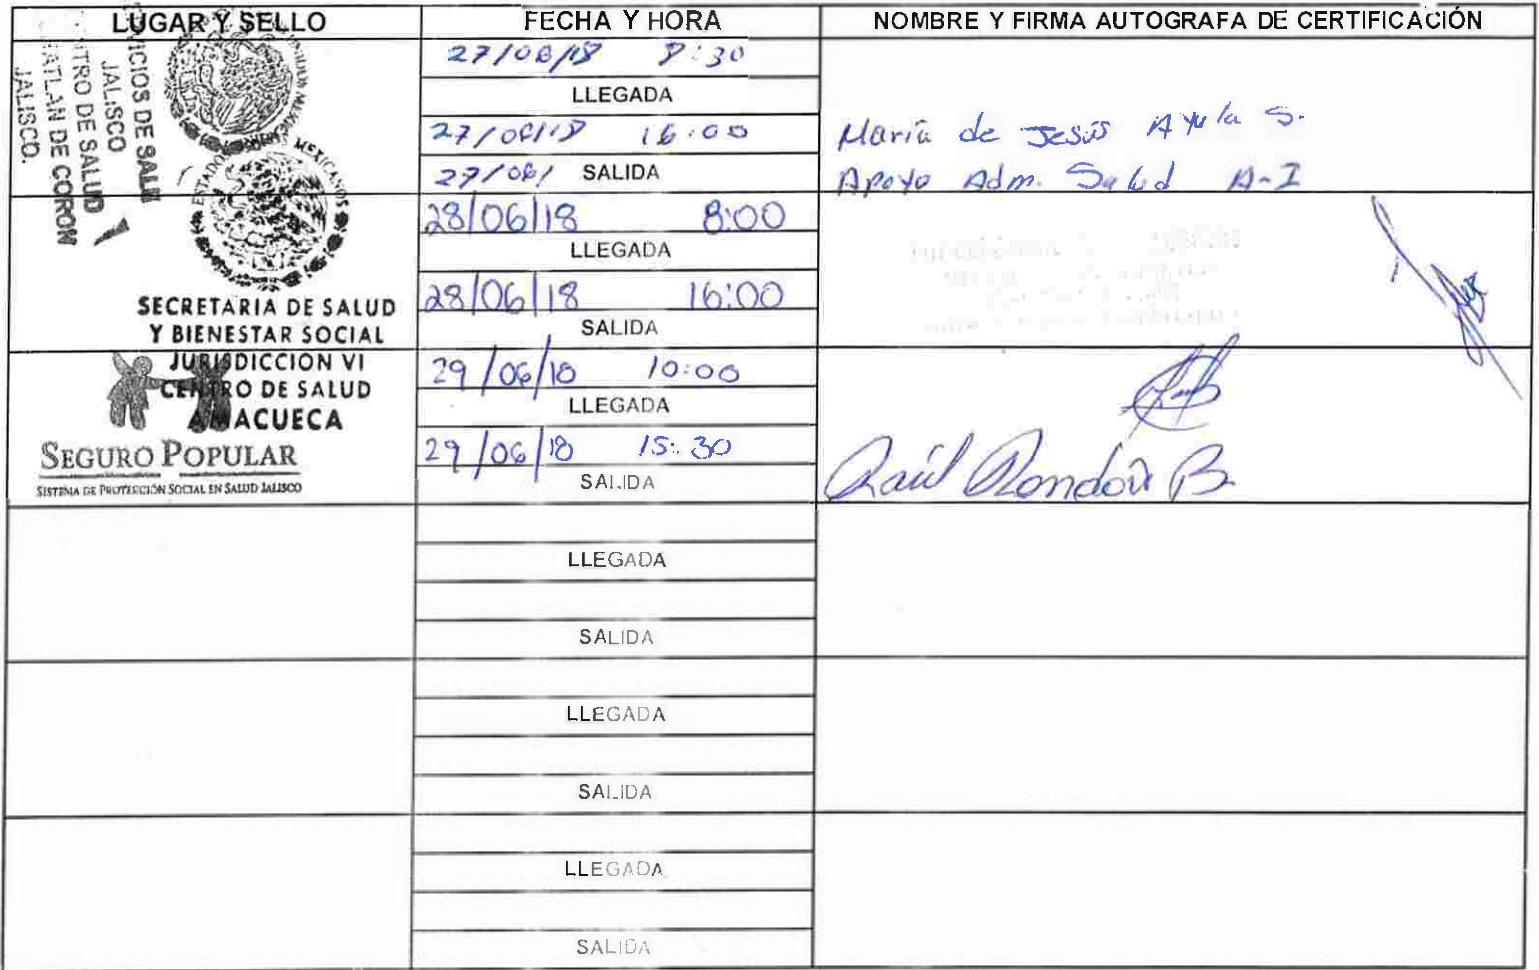 LUGAR Y SELLO
FECHA Y HORA
NOMBRE Y FIRMA AUTOGRAFA DE CERTIFICACIÓN
VICIOS DE SALU
JALISCO
TRO DE SALUD
ATLAN DE CORON
JALISCO.
27/06/18 8:30
LLEGADA
27/06/18 16:00
27/06/ SALIDA
María de Jesús Ayala S.
Apoyo Adm. Salud A-I
ESTADOS
MEXICANOS
SECRETARIA DE SALUD
Y BIENESTAR SOCIAL
28/06/18 8:00
LLEGADA
28/06/18 16:00
SALIDA
JURISDICCION VI
CENTRO DE SALUD
AMACUECA
SEGURO POPULAR
SISTEMA DE PROTECCIÓN SOCIAL EN SALUD JALISCO
29/06/18 10:00
LLEGADA
29/06/18 15:30
SALIDA
Raúl Rondón B.
LLEGADA
SALIDA
LLEGADA
SALIDA
LLEGADA
SALIDA